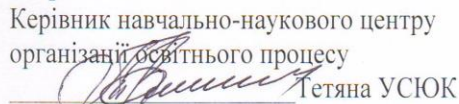 Керівник навчально-наукового центру
організації освітнього процесу
Тетяна УСЮК